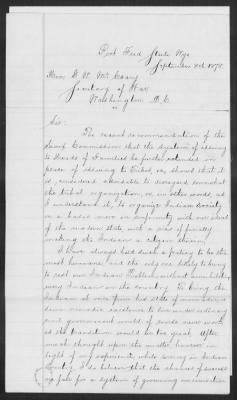 Fort Fred Steele Wyo
September 2d 1878.
Hon. G. W. Mc Crary
Secretary of War
Washington D.C.
Sir:
The recent recommendation of the
Camp Commission that the system of issuing
to Heads of Families be further extended in
place of issuing to Tribes, or, should that it
is considered advisable to disregard somewhat
the tribal organization, or, in other words, as
I understand it, to organize Indian Society
on a basis more in conformity with our ideas
of the modern state, with a view of finally
making the Indian a citizen
I have always had such a feeling to be the
most humane, and the only one likely to
our Indian Problem without
many Indians in the country. To bring the
Indian at once from his state of
to live under ordinary
and government would of course never work
as the transition would be too great. After
much thought upon the matter, however, in
light of my experience while serving in Indian
Country, I do believe that the chances of success
for a system of governing